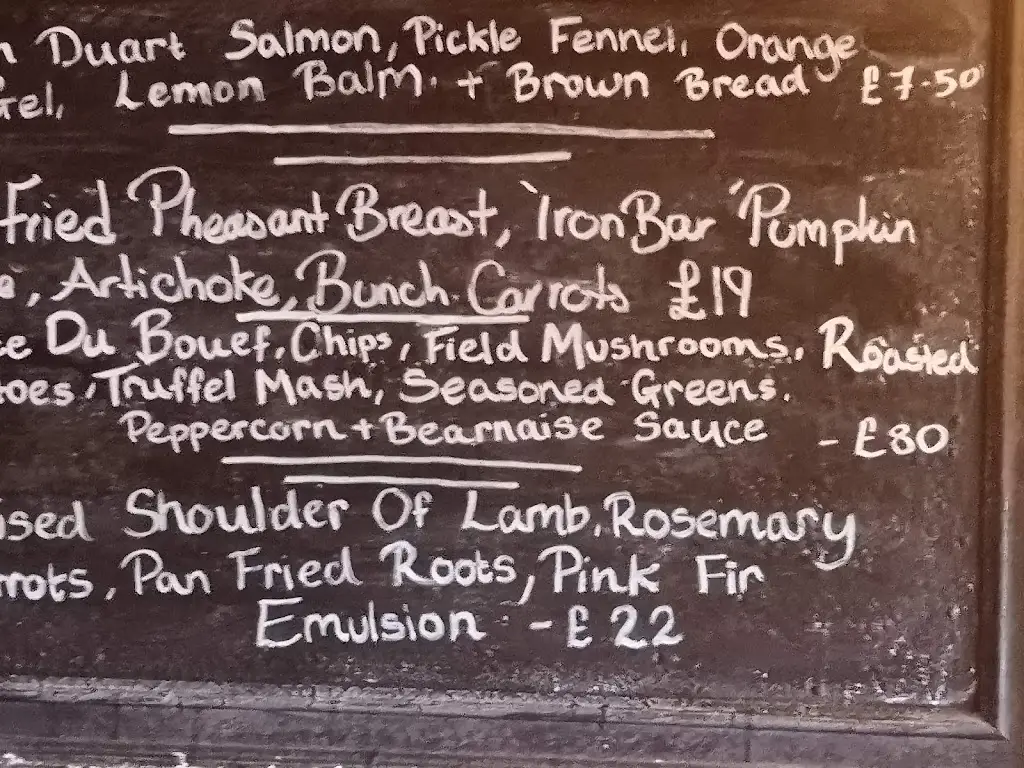 Duart Salmon, Pickle Fennel, Orange
Gel, Lemon Balm. + Brown Bread £7.50
Fried Pheasant Breast, 'Iron Bar' Pumpkin
, Artichoke, Bunch Carrots £19
Du Bouef, Chips, Field Mushrooms, Roasted
toes, Truffel Mash, Seasoned Greens.
Peppercorn + Bearnaise Sauce - £80
ised Shoulder Of Lamb, Rosemary
rrots, Pan Fried Roots, Pink Fir
Emulsion - £22